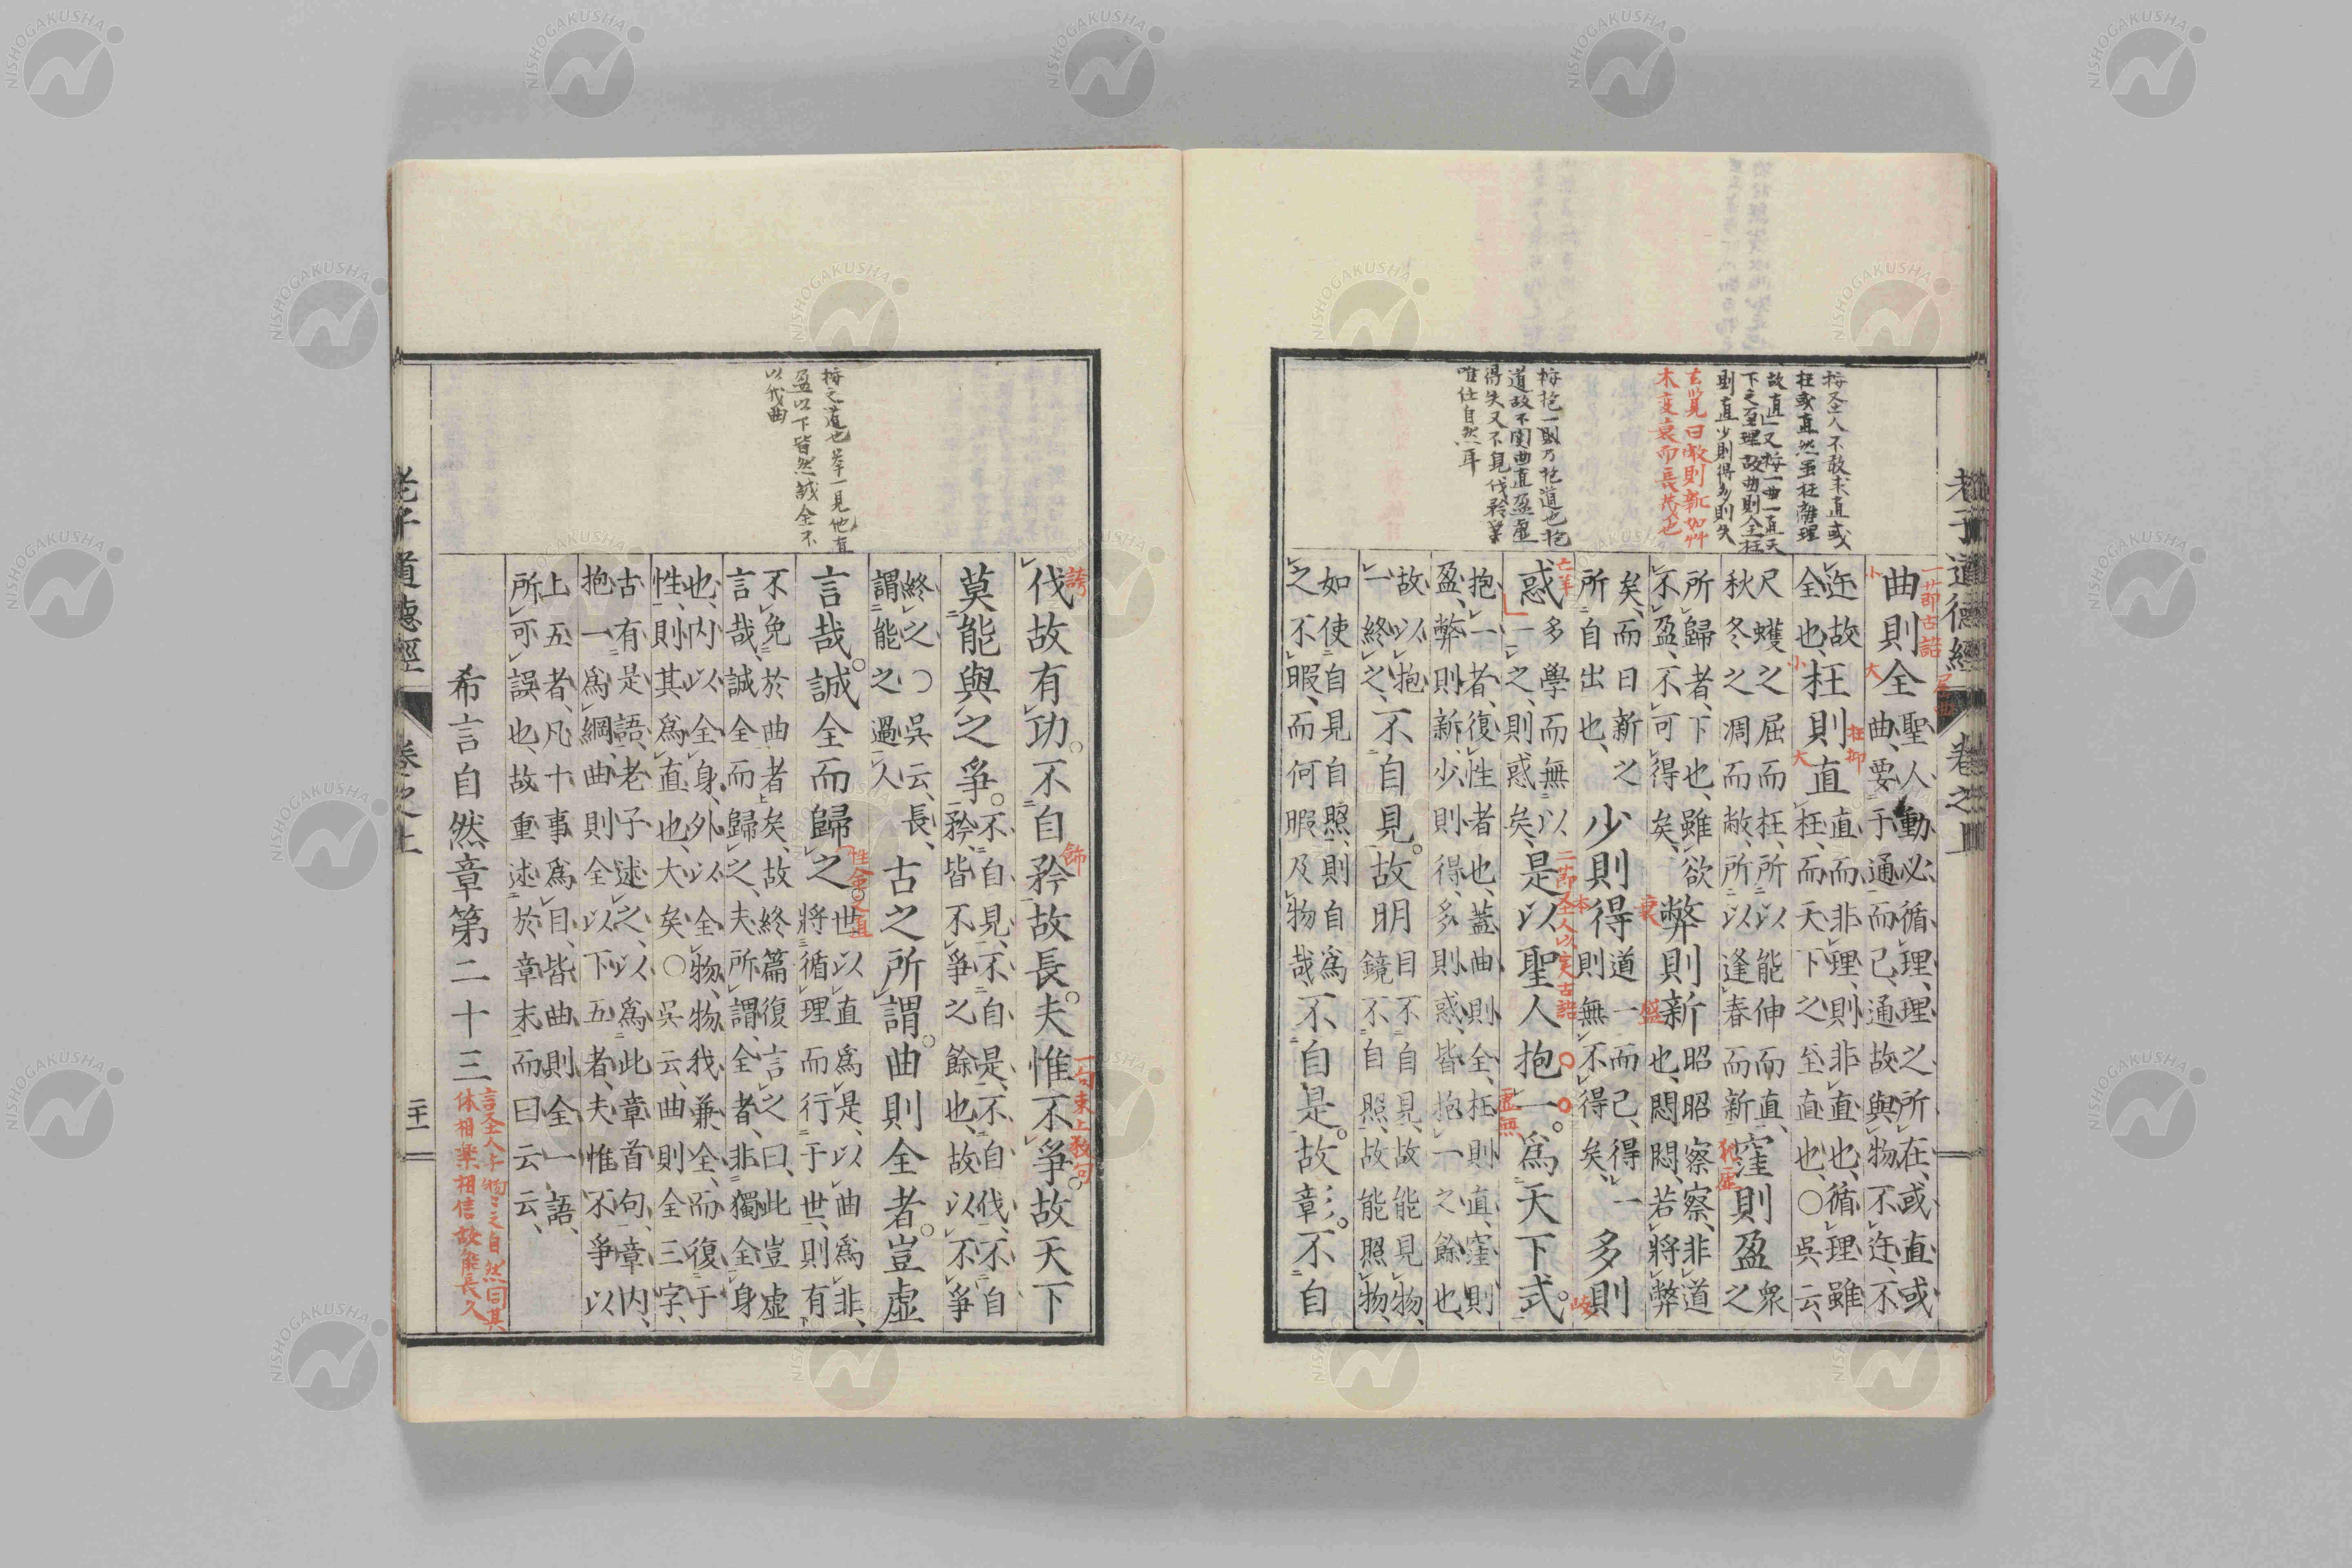 老子道德經　卷之上
一節古語
梅又聖人不敢求直或
枉或直然虽枉離理
故直又梅一曲一直天
下之至理故曲則全枉
則直少則得多則失
玄覧曰敝則新如艸
木変衰而長茂也
梅抱一則乃抱道也抱
道故不関曲直盈虛
得失又不見伐矜等
唯任自然耳
曲則全聖人動必循理、理之所在、或直或
曲、要于通而已、通故與物不迕、不
迕故
全也、枉則直直而非理、則非直也、循理雖
枉、而天下之至直也、〇吳云、
尺蠖之屈而枉、所以能伸而直、
秋冬之凋而敝、所以逢春而新、窪則盈衆
之
所歸者、下也、雖欲
不盈、不可得矣、弊則新昭昭察察、非道
也、悶悶若將弊
矣、而日新之
所自出也、少則得道一而已、得一
則無不得矣、多則
惑多學而無以
一之、則惑矣、是以聖人抱一。爲天下式。
二節又聖人以実古語
抱一者、復性者也、蓋曲則全、枉則直、窪則
盈、弊則新、少則得、多則惑、皆抱一之餘也、
故以抱
一終之、不自見。故明目不自見、故能見物、
鏡不自照、故能照物、
如使自見自照、則自爲
之不暇、而何暇及物哉、不自是。故彰。不自
梅之道也挙一見他直
盈以下皆然誠全不
以我曲
伐故有功。不自矜故長。夫惟不爭。故天下
一句束上数句
莫能與之爭。不自見、不自是、不自伐、不自
矜、皆不爭之餘也、故以不爭
終之、〇吳云、長、
謂能之過人古之所謂。曲則全者。豈虛
言哉。誠全而歸之世以直爲是、以曲爲非、
將循理而行于世、則有
不免於曲者矣、故終篇復言之曰、此豈虛
言哉、誠全而歸之、夫所謂全者、非獨全身
也、內以全身、外以全物、物我兼全、而復于
性、則其爲直也、大矣、〇吳云、曲則全三字、
古有是語、老子述之、以爲此章首句、章內、
抱一爲綱、曲則全以下五者、夫惟不爭以
上五者、凡十事爲目、皆曲則全一語、
所可誤也、故重述於章末而曰云云、
希言自然章第二十三
言聖人于物之自然同其
休相楽相信故能長久
老子道德經　卷之上　二十一